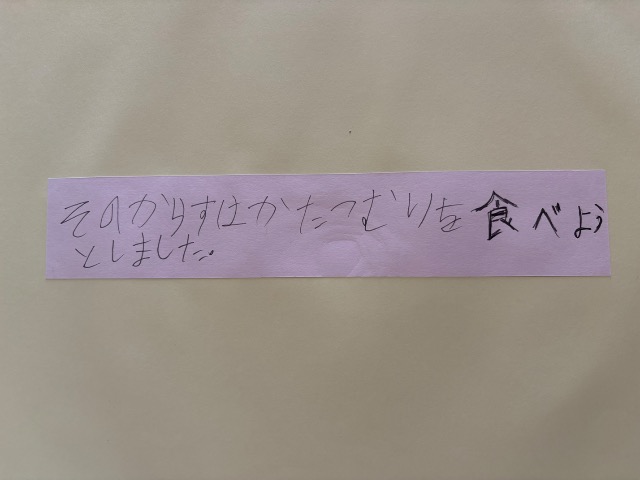 そのからすはかたつむりを食べよう
としました。